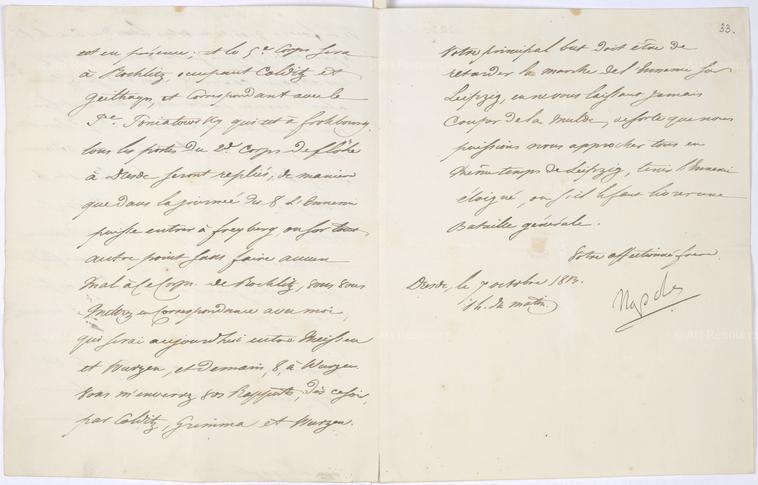 est en présence; et le 5e Corps sera
à Rochlitz, occupant Colditz et
Geithayn, et correspondant avec le
Pce. Poniatowsky qui est à frohbourg.
tous les postes du 2d. Corps de flöhe
à Dresde seront repliés, de manière
que dans la journée du 8 l'Ennemi
puisse entrer à freyberg, ou sur tout
autre point sans faire aucun
mal à ce Corps. de Rochlitz, vous vous
mettrez en Correspondance avec moi,
qui serai aujourd'hui entre Meissen
et Wurzen, et demain, 8, à Wurzen
Vous m'enverrez vos Rapports, dès ce soir,
par Colditz, Grimma et Wurzen.
33.
Votre principal but doit être de
retarder la marche de l'Ennemi sur
Leipzig, en ne vous laissant jamais
Couper de la Mulde, de sorte que nous
puissions nous approcher tous en
même temps de Leipzig, tenir l'Ennemi
éloigné, ou s'il le faut livrer une
Bataille générale.
Votre affectionné frère.
Dresde, le 7 octobre 1813.
1 h. du matin.
Napole